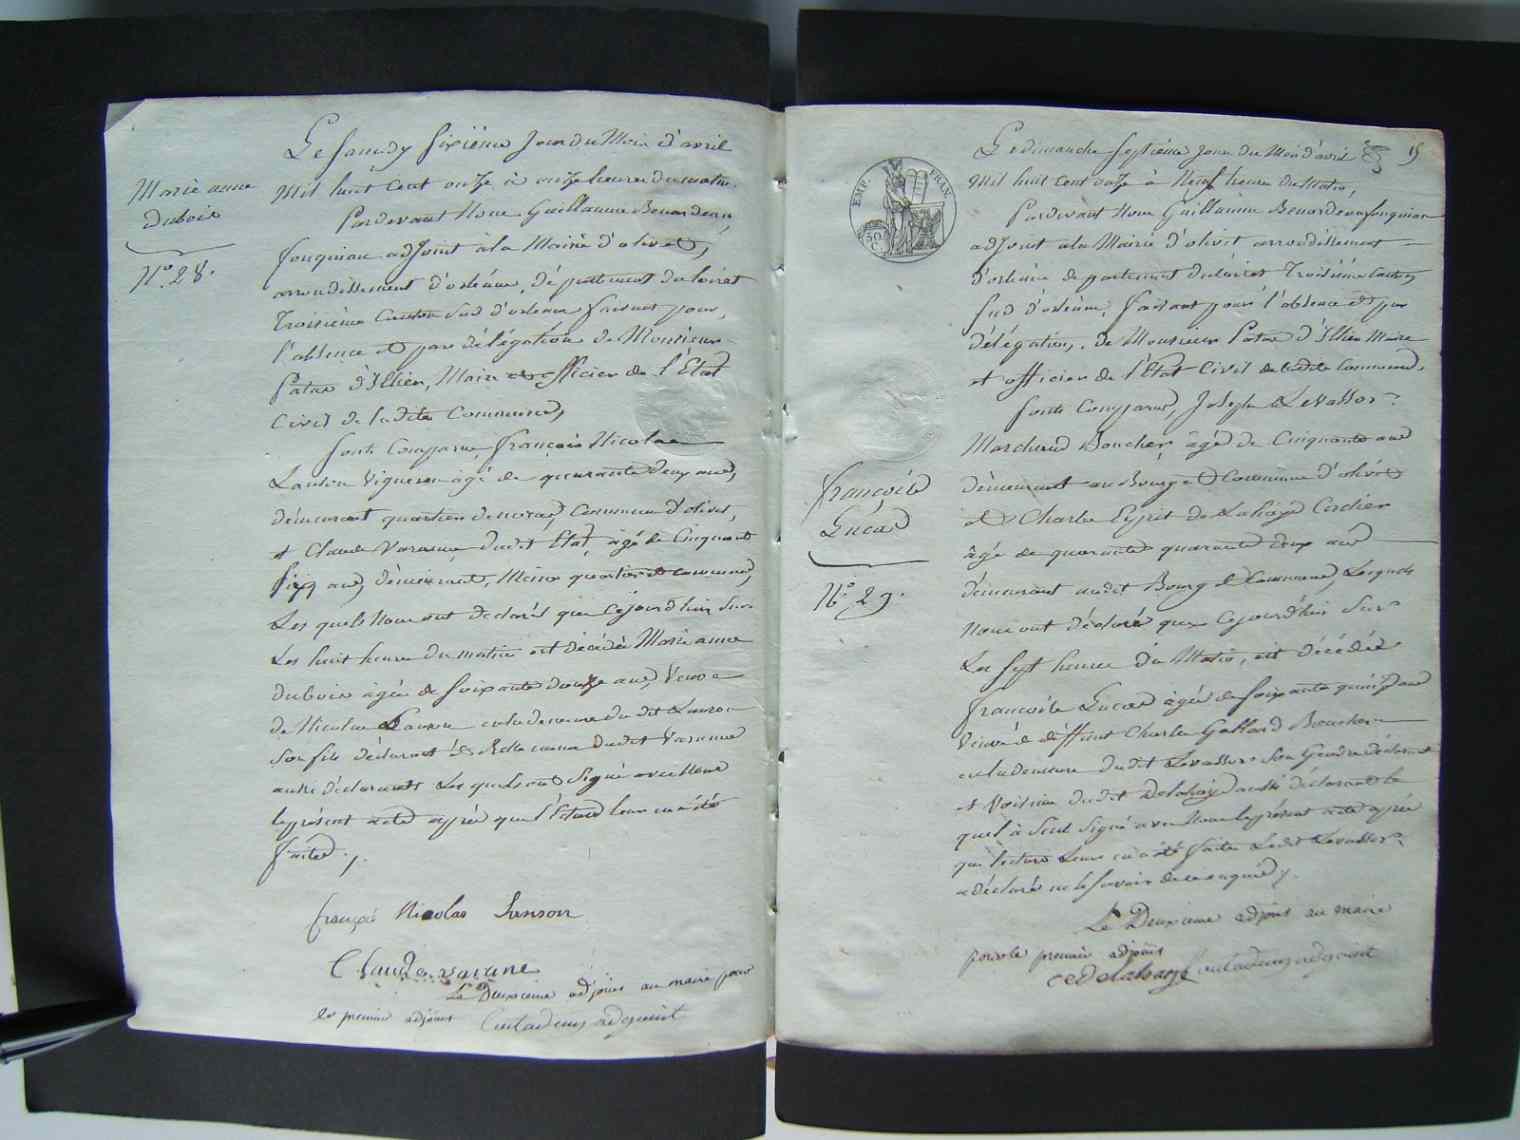 Marie anne
dubois
N.° 28.
Le samedy sixième Jour du Mois d'avril
Mil huit cent onze à onze heures du matin.
Pardevant Nous Guillaume Benardeau
fouquiau adjoint à la Mairie d'olivet,
arrondissement d'orléans, département du loiret
Troisième Canton sud d'orleans faisant pour
l'absence et par délégation de Monsieur
Patas d'Illiers, Maire et officier de l'État
Civil de ladite Commune,
sont Comparus françois Nicolas
Lanson Vigneron âgé de quarante deux ans,
demeurant quartier de Commune d'olivet,
et Claude Varanne dudit Etat, âgé de Cinquante
six ans, demeurant, même quartier et commune,
Les quels Nous ont déclaré que Cejourd'hui sur
Les huit heures du matin est décédée Marie anne
dubois âgée de soixante douze ans, Veuve
de Nicolas Lanson en la demeure du dit Lanson
son fils déclarant et Belle mere dudit Varanne
aussi déclarants Les quels ont signé avec Nous
le présent acte après que lecture leur en a été
faite ./.
françois Nicolas Lanson
Claude varanne
Le Deuxieme adjoint au maire pour
le premier adjoint adjoint
15
Le dimanche septième Jour du Mois d'avril
Mil huit cent onze à Neuf heures du Matin,
EMP. FRAN.
50 C.
Pardevant Nous Guillaume Benardeau fouquiau
adjoint à la Mairie d'olivet arrondissement
d'orléans departement du loiret Troisième Canton
sud d'orléans, faisant pour l'absence et par
délégation, de Monsieur Patas d'Illiers Maire
et officier de l'État Civil de ladite Commune,
sont Comparus, Joseph Levassor
Marchand Boucher âgé de Cinquante ans
demeurant au Bourg et Commune d'olivet
et Charles Esprit de Lahaye Cordier
âgé de quarante quarante deux ans
demeurant audit Bourg et Commune, Lesquels
Nous ont déclaré que Cejourd'hui sur
Les sept heures du Matin, est décédée
françoise Lucas âgée de soixante quinze ans
Veuve de deffunt Charles Gallard Boucher
en la demeure dudit Levassor son Gendre déclarant
et Voisine dudit Delahaye aussi déclarant le
quel à seul signé avec Nous le présent acte après
que lecture leur en a été faite Ledit Levassor
a déclaré ne le savoir de ce enquis ./.
françoise
Lucas
N.° 29.
Le Deuxieme adjoint au maire
pour le premier adjoint
CE Delahaye adjoint